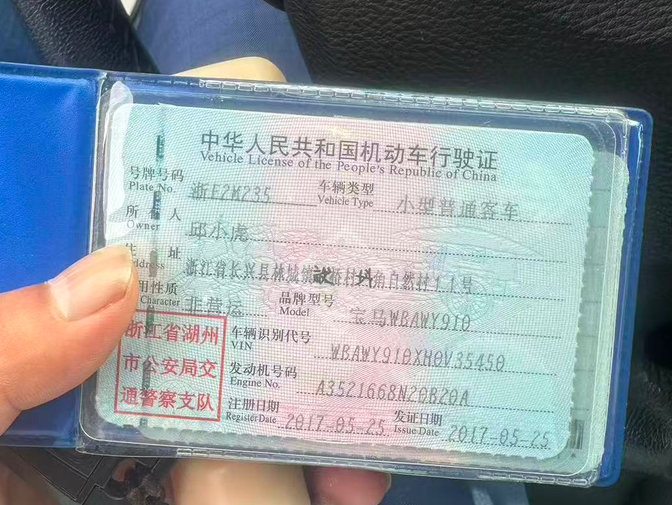 中华人民共和国机动车行驶证
Vehicle License of the People's Republic of China
号牌号码 浙E2M235 车辆类型 小型普通客车
Plate No. Vehicle Type
所 人 邱小虎
Owner
址 浙江省长兴县林城镇 桥村 角自然村11号
Address
用性质 非营运 品牌型号 宝马WBAWY910
Character Model
浙江省湖州
市公安局交
通警察支队
车辆识别代号 WBAWY910XH0V35450
VIN
发动机号码 A3521668N20B20A
Engine No.
注册日期 2017-05-25 发证日期 2017-05-25
Register Date Issue Date